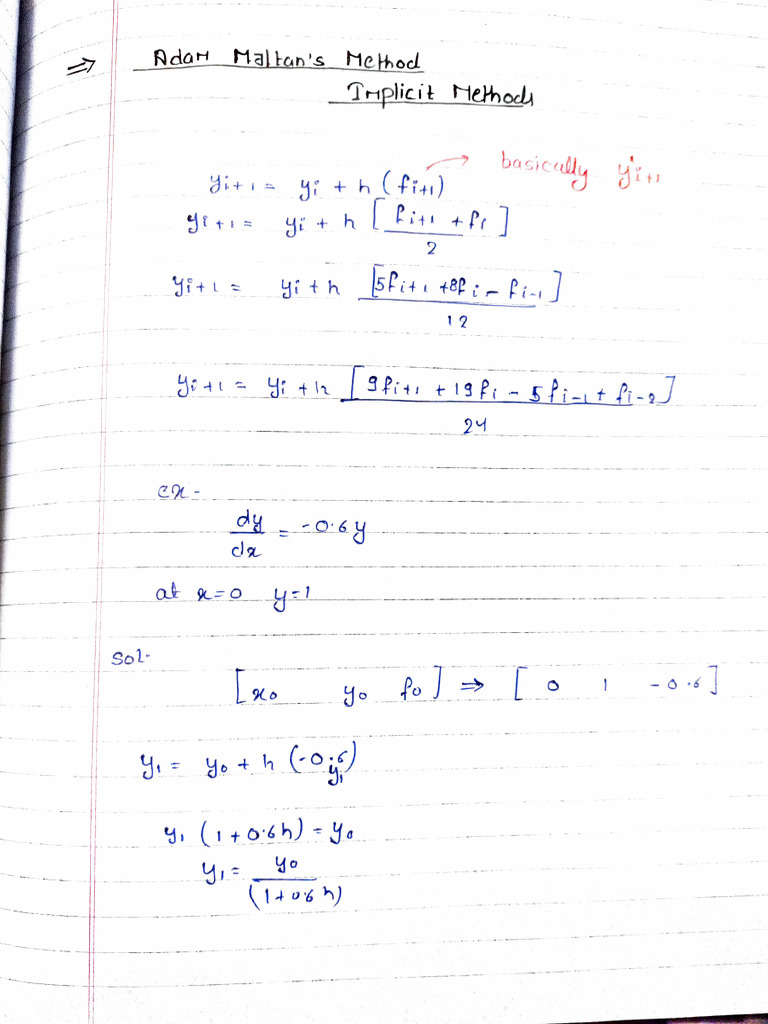 ⇒ Adam Maltan's Method
Implicit Methods
yi+1 = yi + h (fi+1) → basically y'i+1
yi+1 = yi + h [fi+1 + fi]/2
yi+1 = yi + h [5fi+1 + 8fi - fi-1]/12
yi+1 = yi + h [9fi+1 + 19fi - 5fi-1 + fi-2]/24
ex-
dy/dx = -0.6y
at x=0 y=1
Sol-
[x0 y0 f0] ⇒ [0 1 -0.6]
y1 = y0 + h (-0.6y1)
y1 (1+0.6h) = y0
y1 = y0/(1+0.6h)